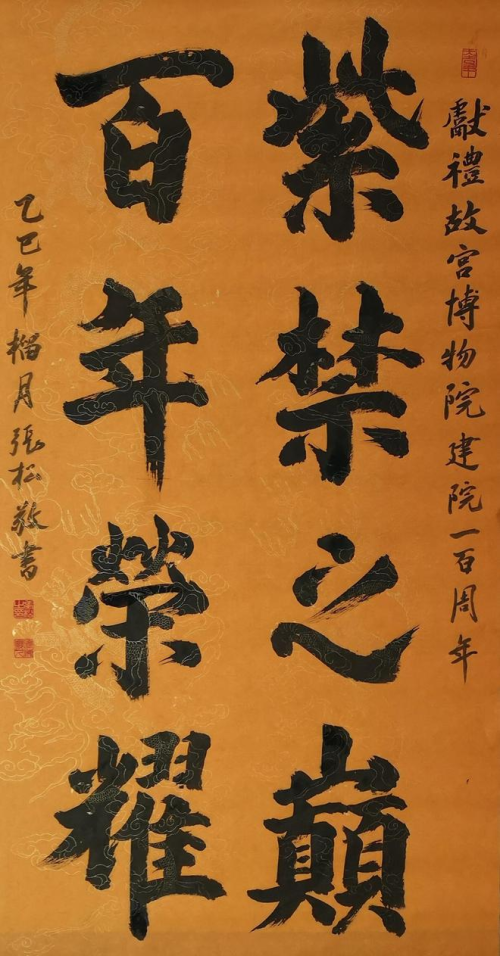 獻禮故宮博物院建院一百周年
紫禁之巔
百年榮耀
乙巳年榴月張松敬書